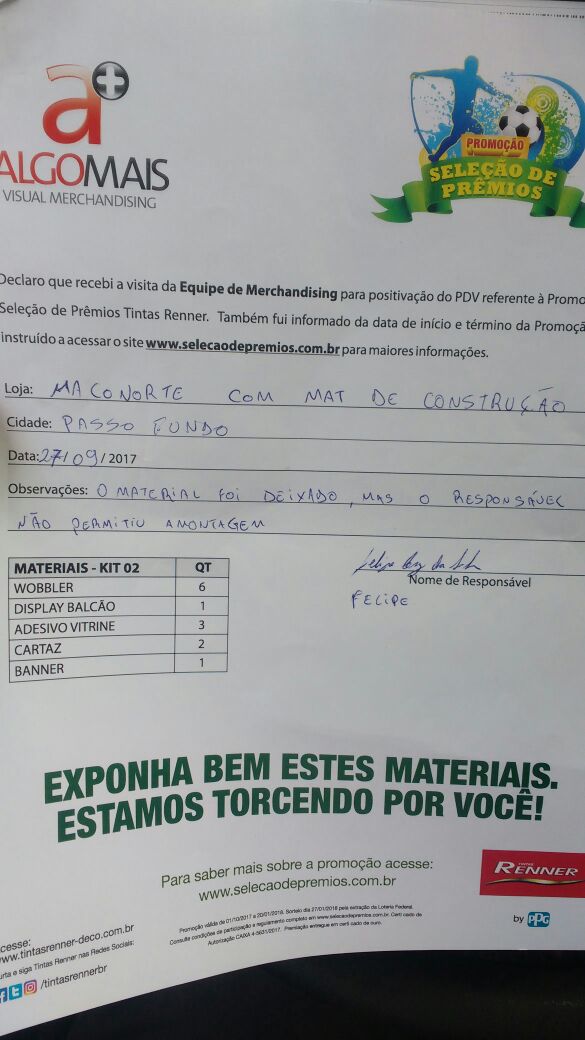 a+
ALGOMAIS
VISUAL MERCHANDISING
PROMOÇÃO
SELEÇÃO DE
PRÊMIOS
Declaro que recebi a visita da Equipe de Merchandising para positivação do PDV referente à Promo
Seleção de Prêmios Tintas Renner. Também fui informado da data de início e término da Promoçã
instruído a acessar o site www.selecaodepremios.com.br para maiores informações.
Loja: MACONORTE COM MAT DE CONSTRUÇÃO
Cidade: PASSO FUNDO
Data: 27/09/2017
Observações: O MATERIAL FOI DEIXADO, MAS O RESPONSÁVEL
NÃO PERMITIU A MONTAGEM
MATERIAIS - KIT 02 QT
WOBBLER 6
DISPLAY BALCÃO 1
ADESIVO VITRINE 3
CARTAZ 2
BANNER 1
Nome de Responsável
FELIPE
EXPONHA BEM ESTES MATERIAIS.
ESTAMOS TORCENDO POR VOCÊ!
Para saber mais sobre a promoção acesse:
www.selecaodepremios.com.br
TINTAS
RENNER
by PPG
Promoção válida de 01/10/2017 a 20/01/2018. Sorteio dia 27/01/2018 pela extração da Loteria Federal.
Consulte condições de participação e regulamento completo em www.selecaodepremios.com.br. Certificado de
Autorização CAIXA 4-5631/2017. Premiação entregue em certificado de ouro.
cesse:
www.tintasrenner-deco.com.br
urta e siga Tintas Renner nas Redes Sociais:
/tintasrennerbr